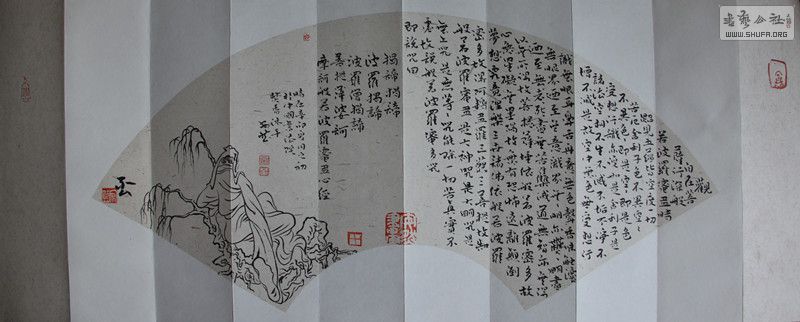 觀
自在菩
薩行深般
若波羅蜜多時
照見五蘊皆空度一切
苦厄舍利子色不異空空
不異色色即是空空即是色
受想行識亦復如是舍利子是
諸法空相不生不滅不垢不淨不
增不減是故空中無色無受想行
識無眼耳鼻舌身意無色聲香味觸法
無眼界乃至無意識界無無明亦無無明盡
乃至無老死亦無老死盡無苦集滅道無智亦無得
以無所得故菩提薩埵依般若波羅蜜多故
心無罣礙無罣礙故無有恐怖遠離顛倒
夢想究竟涅槃三世諸佛依般若波羅
蜜多故得阿耨多羅三藐三菩提故知
般若波羅蜜多是大神咒是大明咒是
無上咒是無等等咒能除一切苦真實不
虛故說般若波羅蜜多咒
即說咒曰
揭諦揭諦
波羅揭諦
波羅僧揭諦
菩提薩婆訶
摩訶般若波羅蜜多心經
書藝公社
WWW.SHUFA.ORG